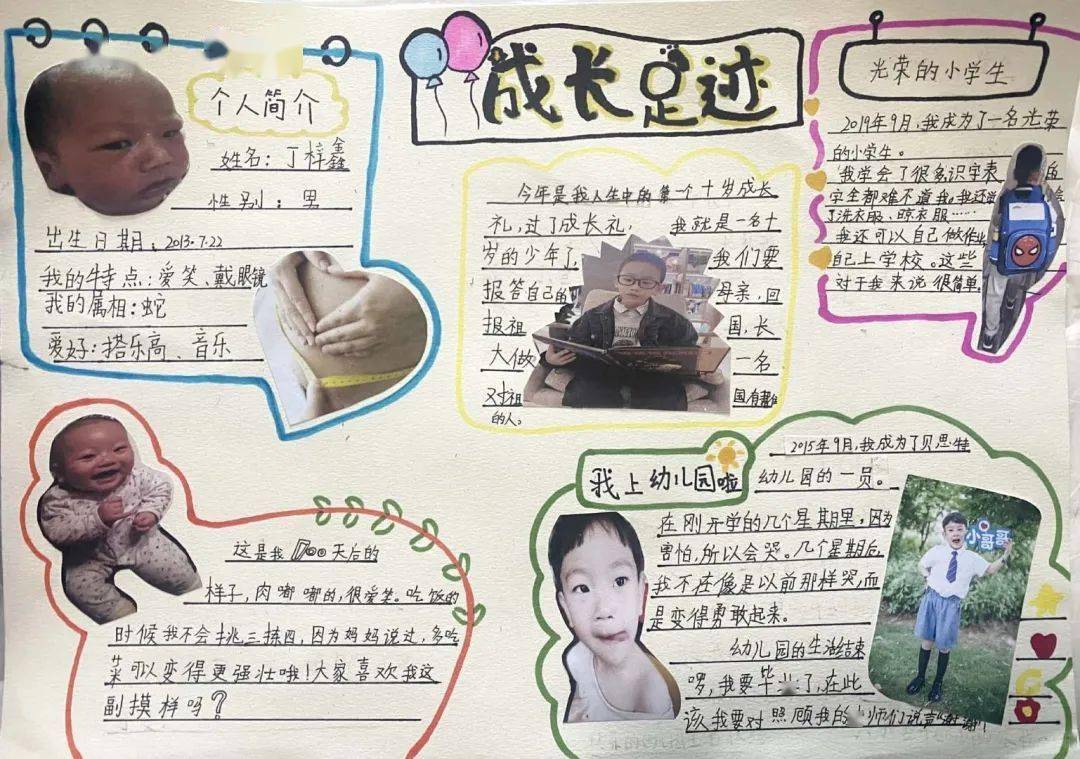 成长足迹
个人简介
姓名：丁梓鑫
性别：男
出生日期：2013.7.22
我的特点：爱笑、戴眼镜
我的属相：蛇
爱好：搭乐高、音乐
今年是我人生中的第一个十岁成长
礼，过了成长礼， 我就是一名十
岁的少年了 我们要
报答自己的 母亲，回
报祖 国，长
大做 一名
对祖 国有
的人。
光荣的小学生
2019年9月，我成为了一名光荣
的小学生。
我学会了很多识字表
字全都难不道我，我还
了洗衣服、晾衣服……
我还可以自己做作
自己上学校。这些
对于我来说很简单
这是我100天后的
样子，肉嘟嘟的，很爱笑。吃饭的
时候我不会挑三拣四，因为妈妈说过，多吃
菜可以变得更强壮哦！大家喜欢我这
副模样吗？
我上幼儿园啦
2015年9月，我成为了贝思特
幼儿园的一员。
在刚开学的几个星期里，因为
害怕，所以会哭。几个星期后
我不在像是以前那样哭，而
是变得勇敢起来。
幼儿园的生活结束
啰，我要毕 了，在此
该我要对照顾我的 师们说声谢谢！
小哥哥